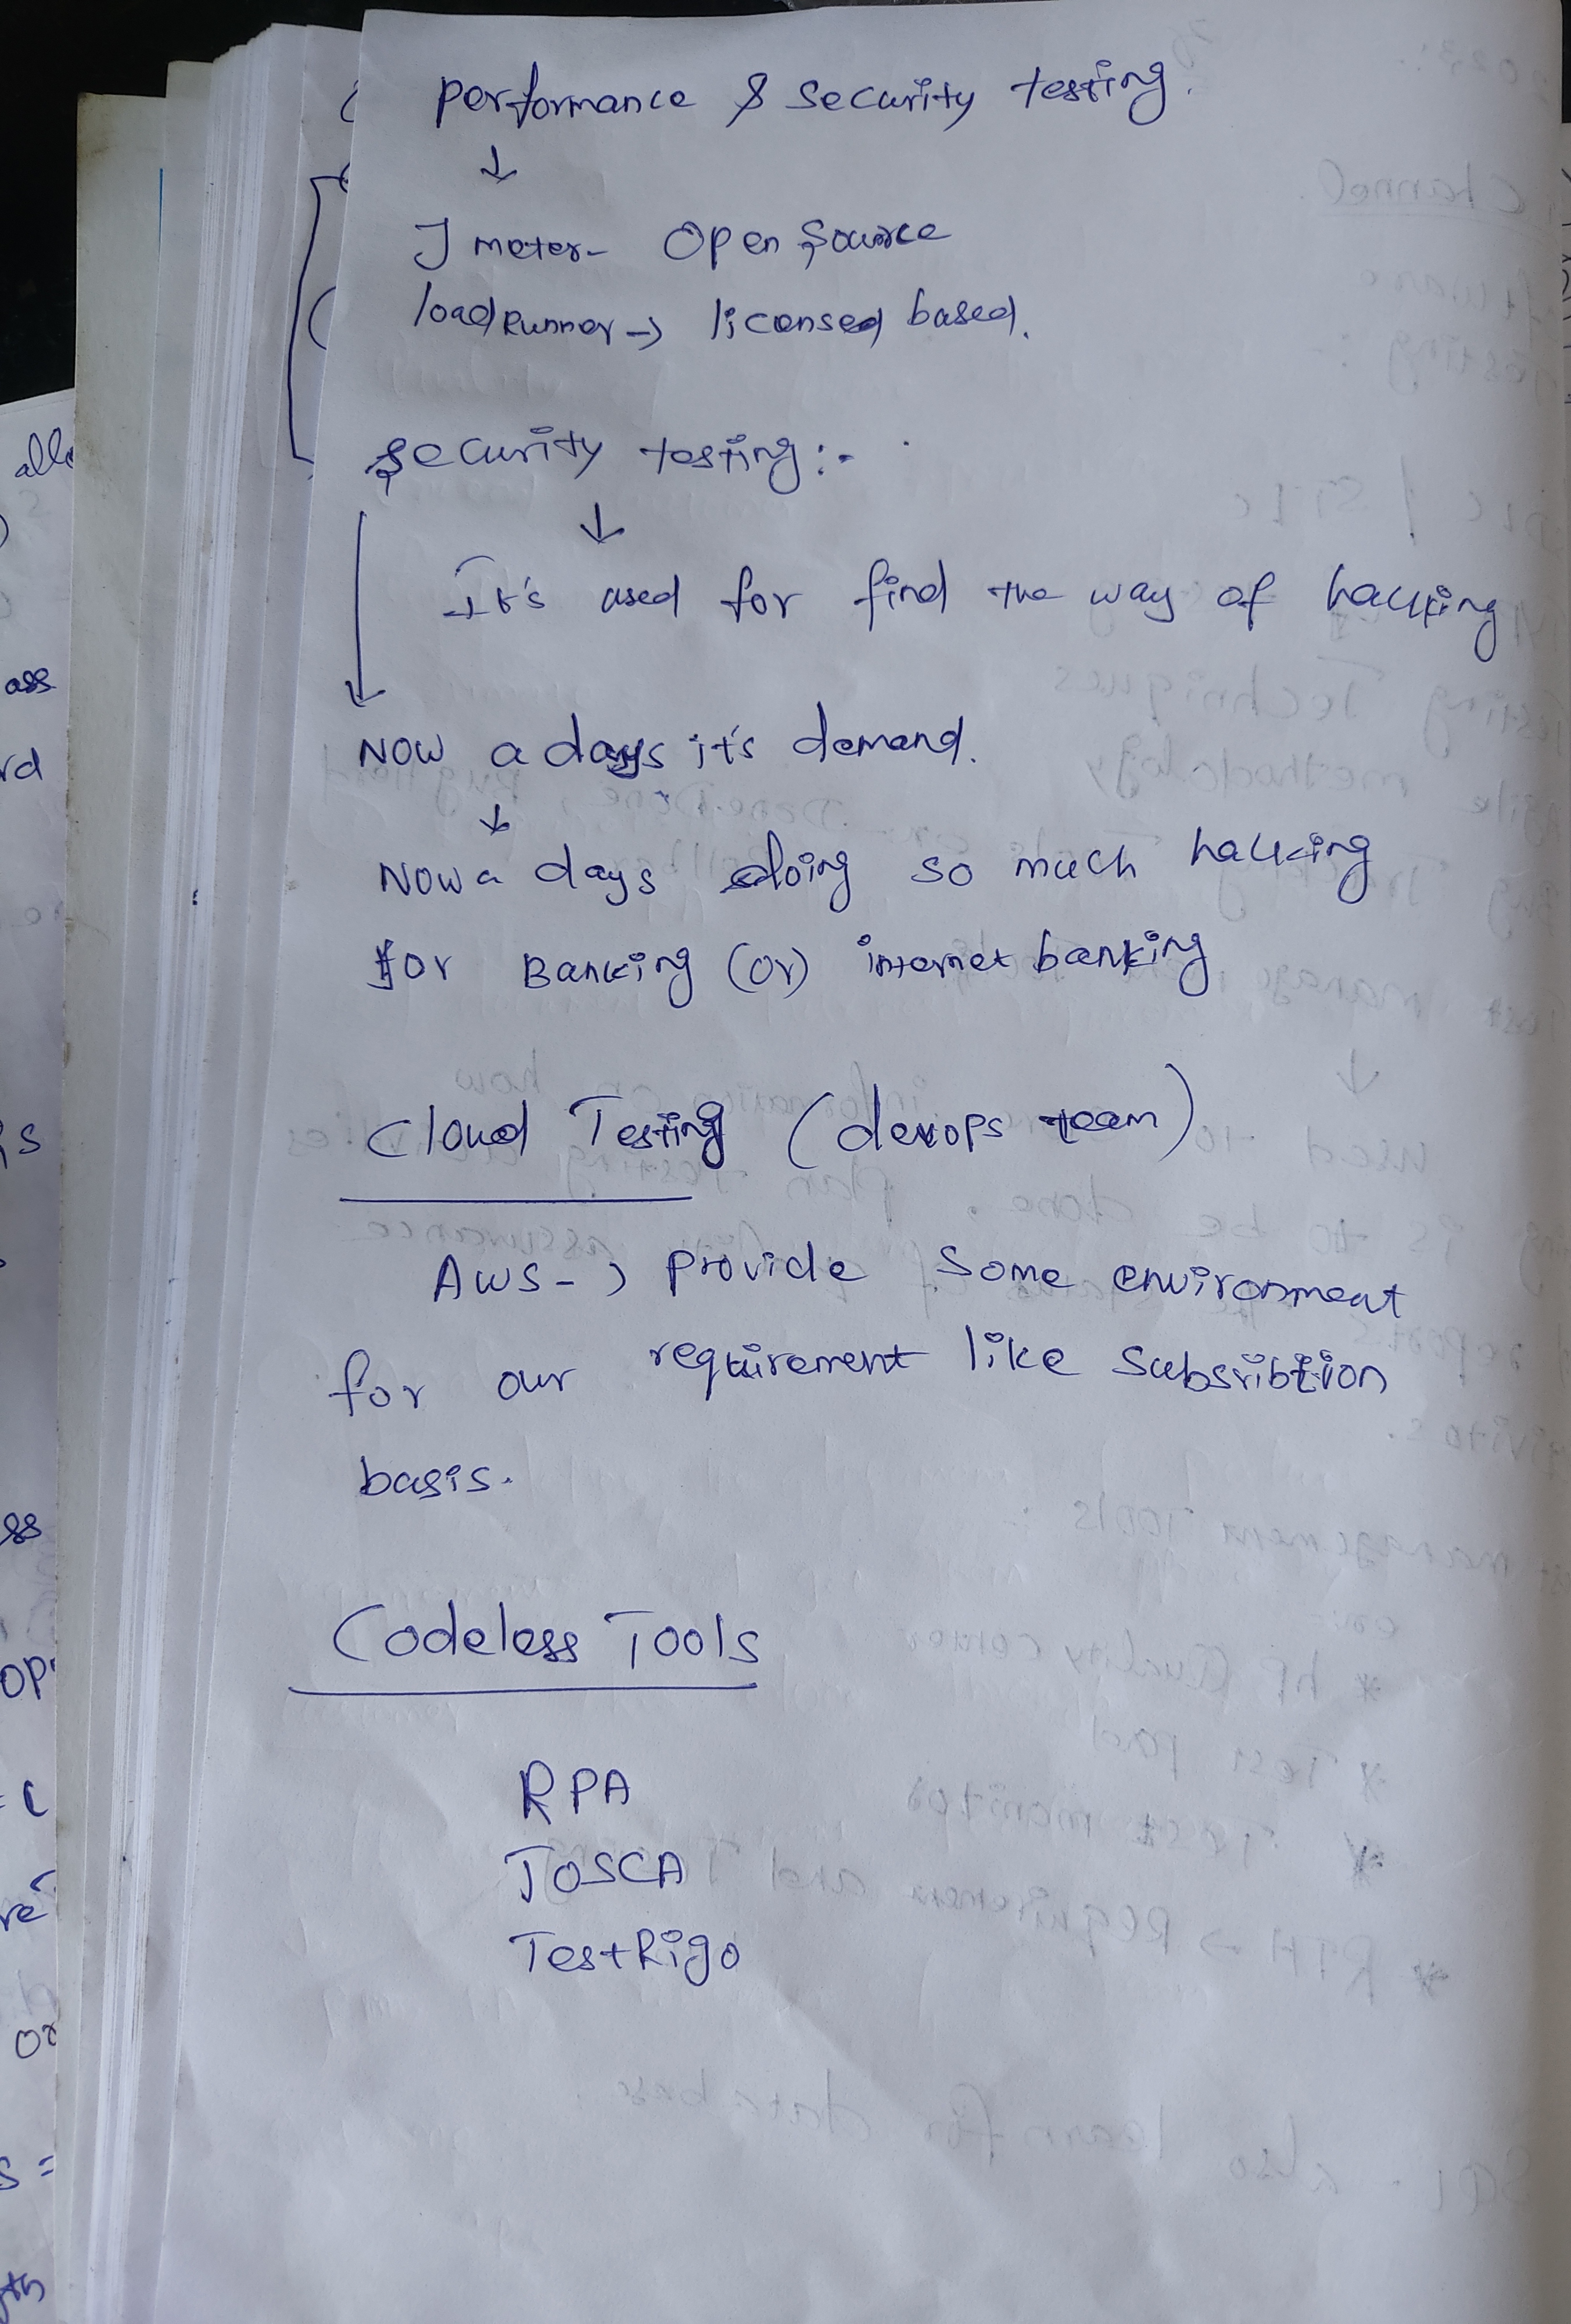 performance & security testing.
↓
J meter- Open Source
load Runner → licensed based.
security testing:-
↓
It's used for find the way of hacking
↓
Now a days it's demand.
↓
Now a days doing so much hacking
for Banking (or) internet banking
Cloud Testing (devops team)
AWS-→ provide some environment
for our requirement like Subsribtion
basis.
Codeless Tools
RPA
TOSCA
TestRigo